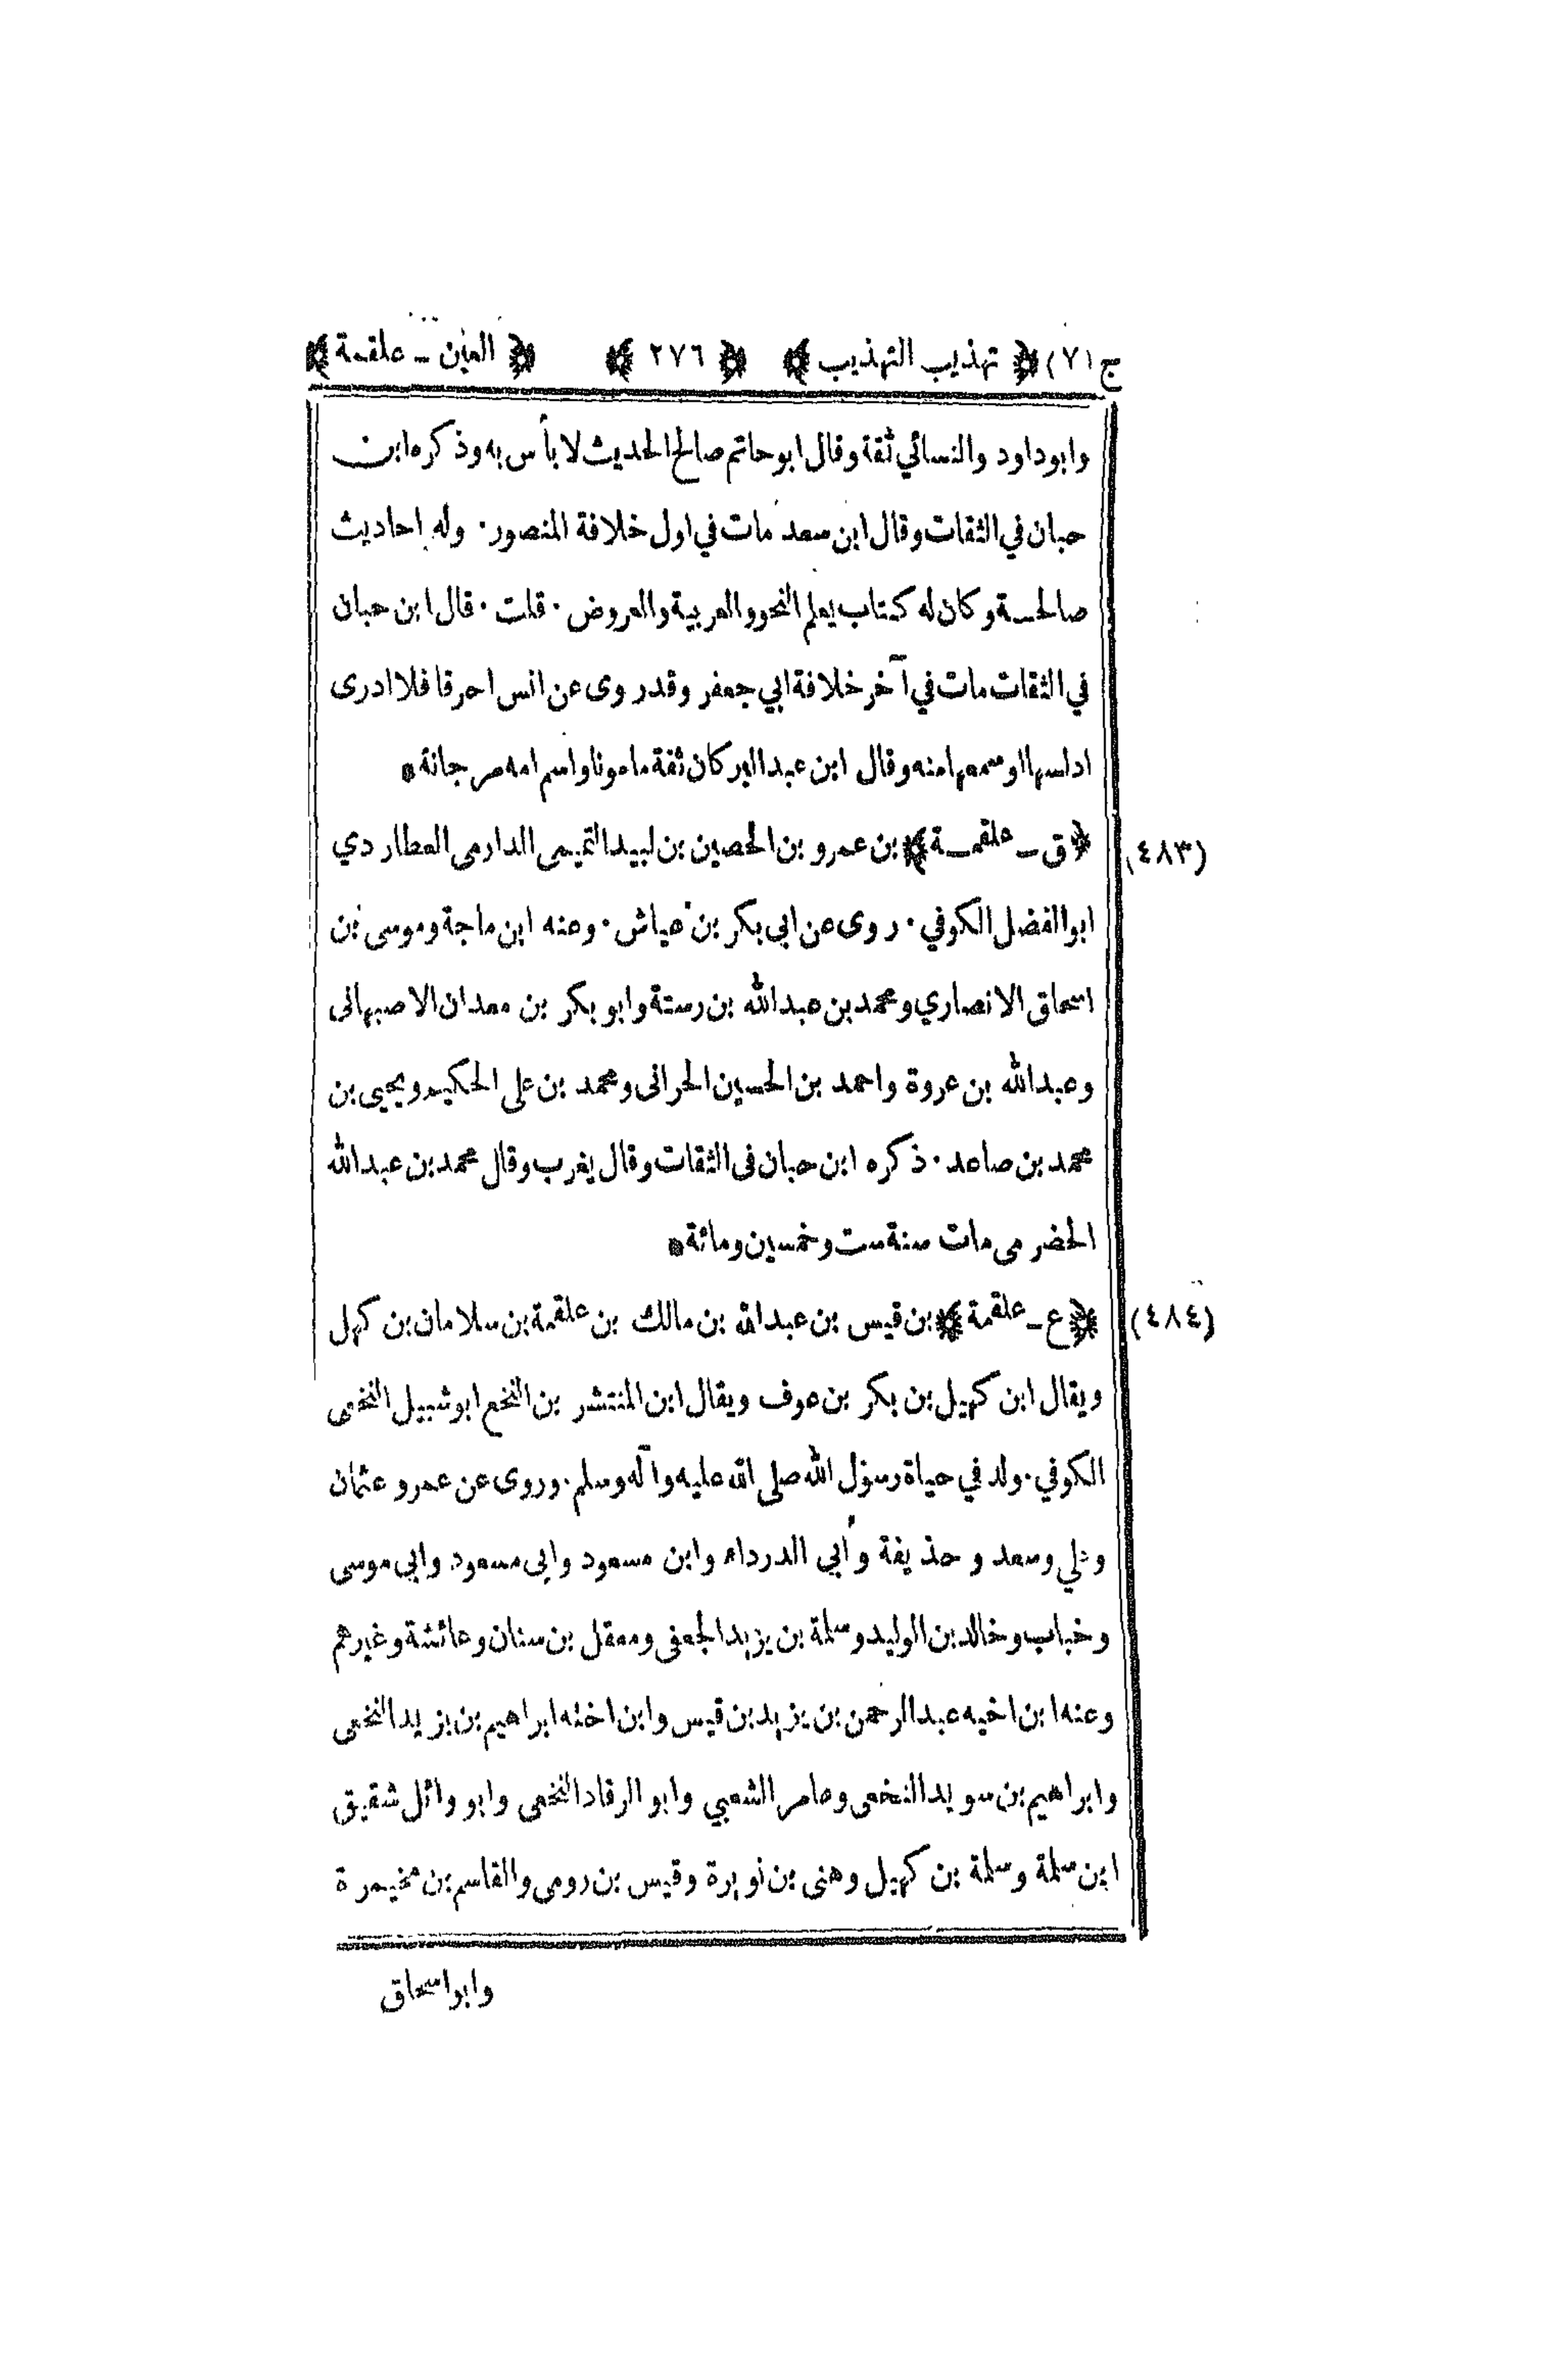 ج (٧) ﴿ تهذيب التهذيب ﴾ ﴿ ٢٧٦ ﴾ ﴿ العين ـ علقمة ﴾
وابوداود والنسائي ثقة وقال ابوحاتم صالح الحديث لا بأس به وذكره ابن
حبان في الثقات وقال ابن سعد مات في اول خلافة المنصور. وله احاديث
صالحة وكان له كتاب يعلم النحو والعربية والعروض. قلت. قال ابن حبان
في الثقات مات في آخر خلافة ابي جعفر وقد روى عن انس احرفا فلا ادرى
ادلسها او سمعها منه وقال ابن عبد البر كان ثقة مامونا واسم امه مرجانة*
(٤٨٣) ﴿ق ـ علقمة﴾ بن عمرو بن الحصين بن لبيد التميمى الدارمى العطاردي
ابو الفضل الكوفي. روى عن ابى بكر بن عياش. وعنه ابن ماجة وموسى بن
اسحاق الانصاري ومحمد بن عبد الله بن رستة وابو بكر بن معدان الاصبهانى
وعبد الله بن عروة واحمد بن الحسين الحرانى ومحمد بن على الحكيم ويحيى بن
محمد بن صاعد. ذكره ابن حبان فى الثقات وقال يغرب وقال محمد بن عبد الله
الحضرمى مات سنة ست وخمسين ومائة*
(٤٨٤) ﴿ع ـ علقمة﴾ بن قيس بن عبد الله بن مالك بن علقمة بن سلامان بن كهل
ويقال ابن كهيل بن بكر بن عوف ويقال ابن المنتشر بن النخع ابو شبيل النخعى
الكوفي. ولد في حياة رسول الله صلى الله عليه وآله وسلم. وروى عن عمر وعثمان
وعلي وسعد وحذيفة وأبي الدرداء وابن مسعود وابى مسعود وابي موسى
وخباب وخالد بن الوليد وسلمة بن يزيد الجعفى ومعقل بن سنان وعائشة وغيرهم
وعنه ابن اخيه عبد الرحمن بن يزيد بن قيس وابن اخته ابراهيم بن يزيد النخعى
وابراهيم بن سويد النخعى وعامر الشعبي وابو الرقاد النخعى وابو وائل شقيق
ابن سلمة وسلمة بن كهيل وهنى بن نويرة وقيس بن رومى والقاسم بن مخيمرة
وابو اسحاق